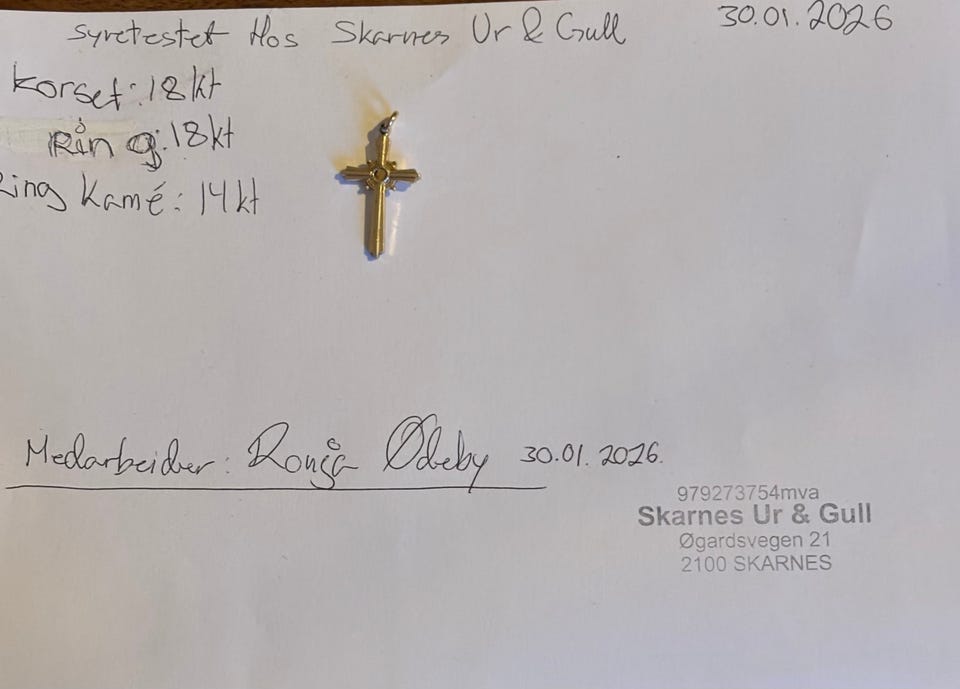 Syretestet Hos Skarnes Ur & Gull 30.01.2026
Korset: 18kt
Ring: 18kt
Ring Kamé: 14kt
Medarbeider: Ronja Ødeby 30.01.2026.
979273754mva
Skarnes Ur & Gull
Øgardsvegen 21
2100 SKARNES